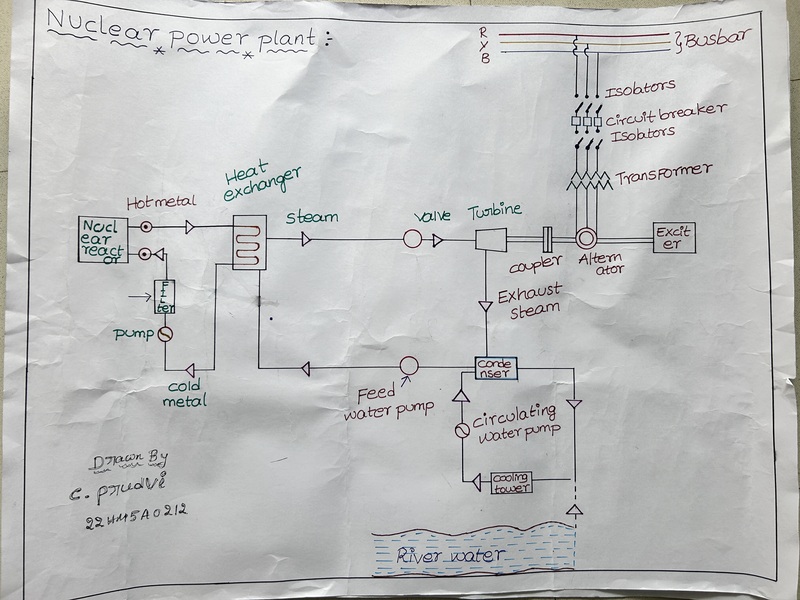 Nuclear power plant:
R
Y
B
Busbar
Isolators
Circuit breaker
Isolators
Transformer
Heat
exchanger
Hot metal
Steam
Valve
Turbine
Nucl
ear
react
or
coupler
Altern
ator
Excit
er
Exhaust
steam
FIL
ter
pump
cold
metal
Feed
water pump
conde
nser
circulating
water pump
cooling
tower
River water
Drawn By
C. Prudvi
22HM5A0212